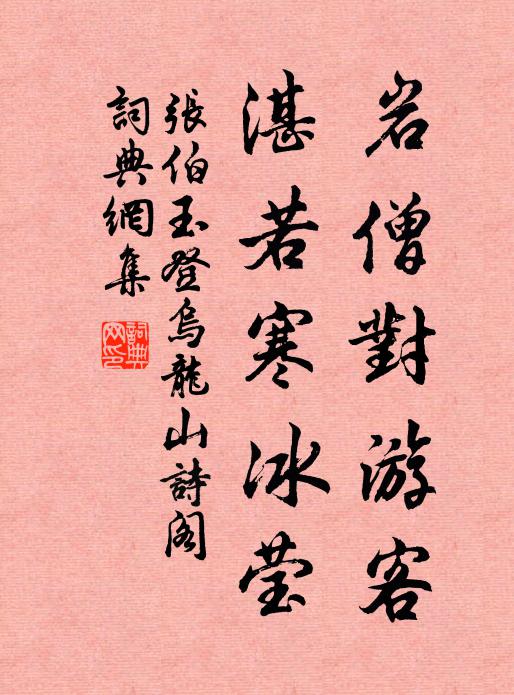 岩僧對游客
湛若寒冰莹
張伯玉登烏龍山詩閣
詞典網集
詞典网印